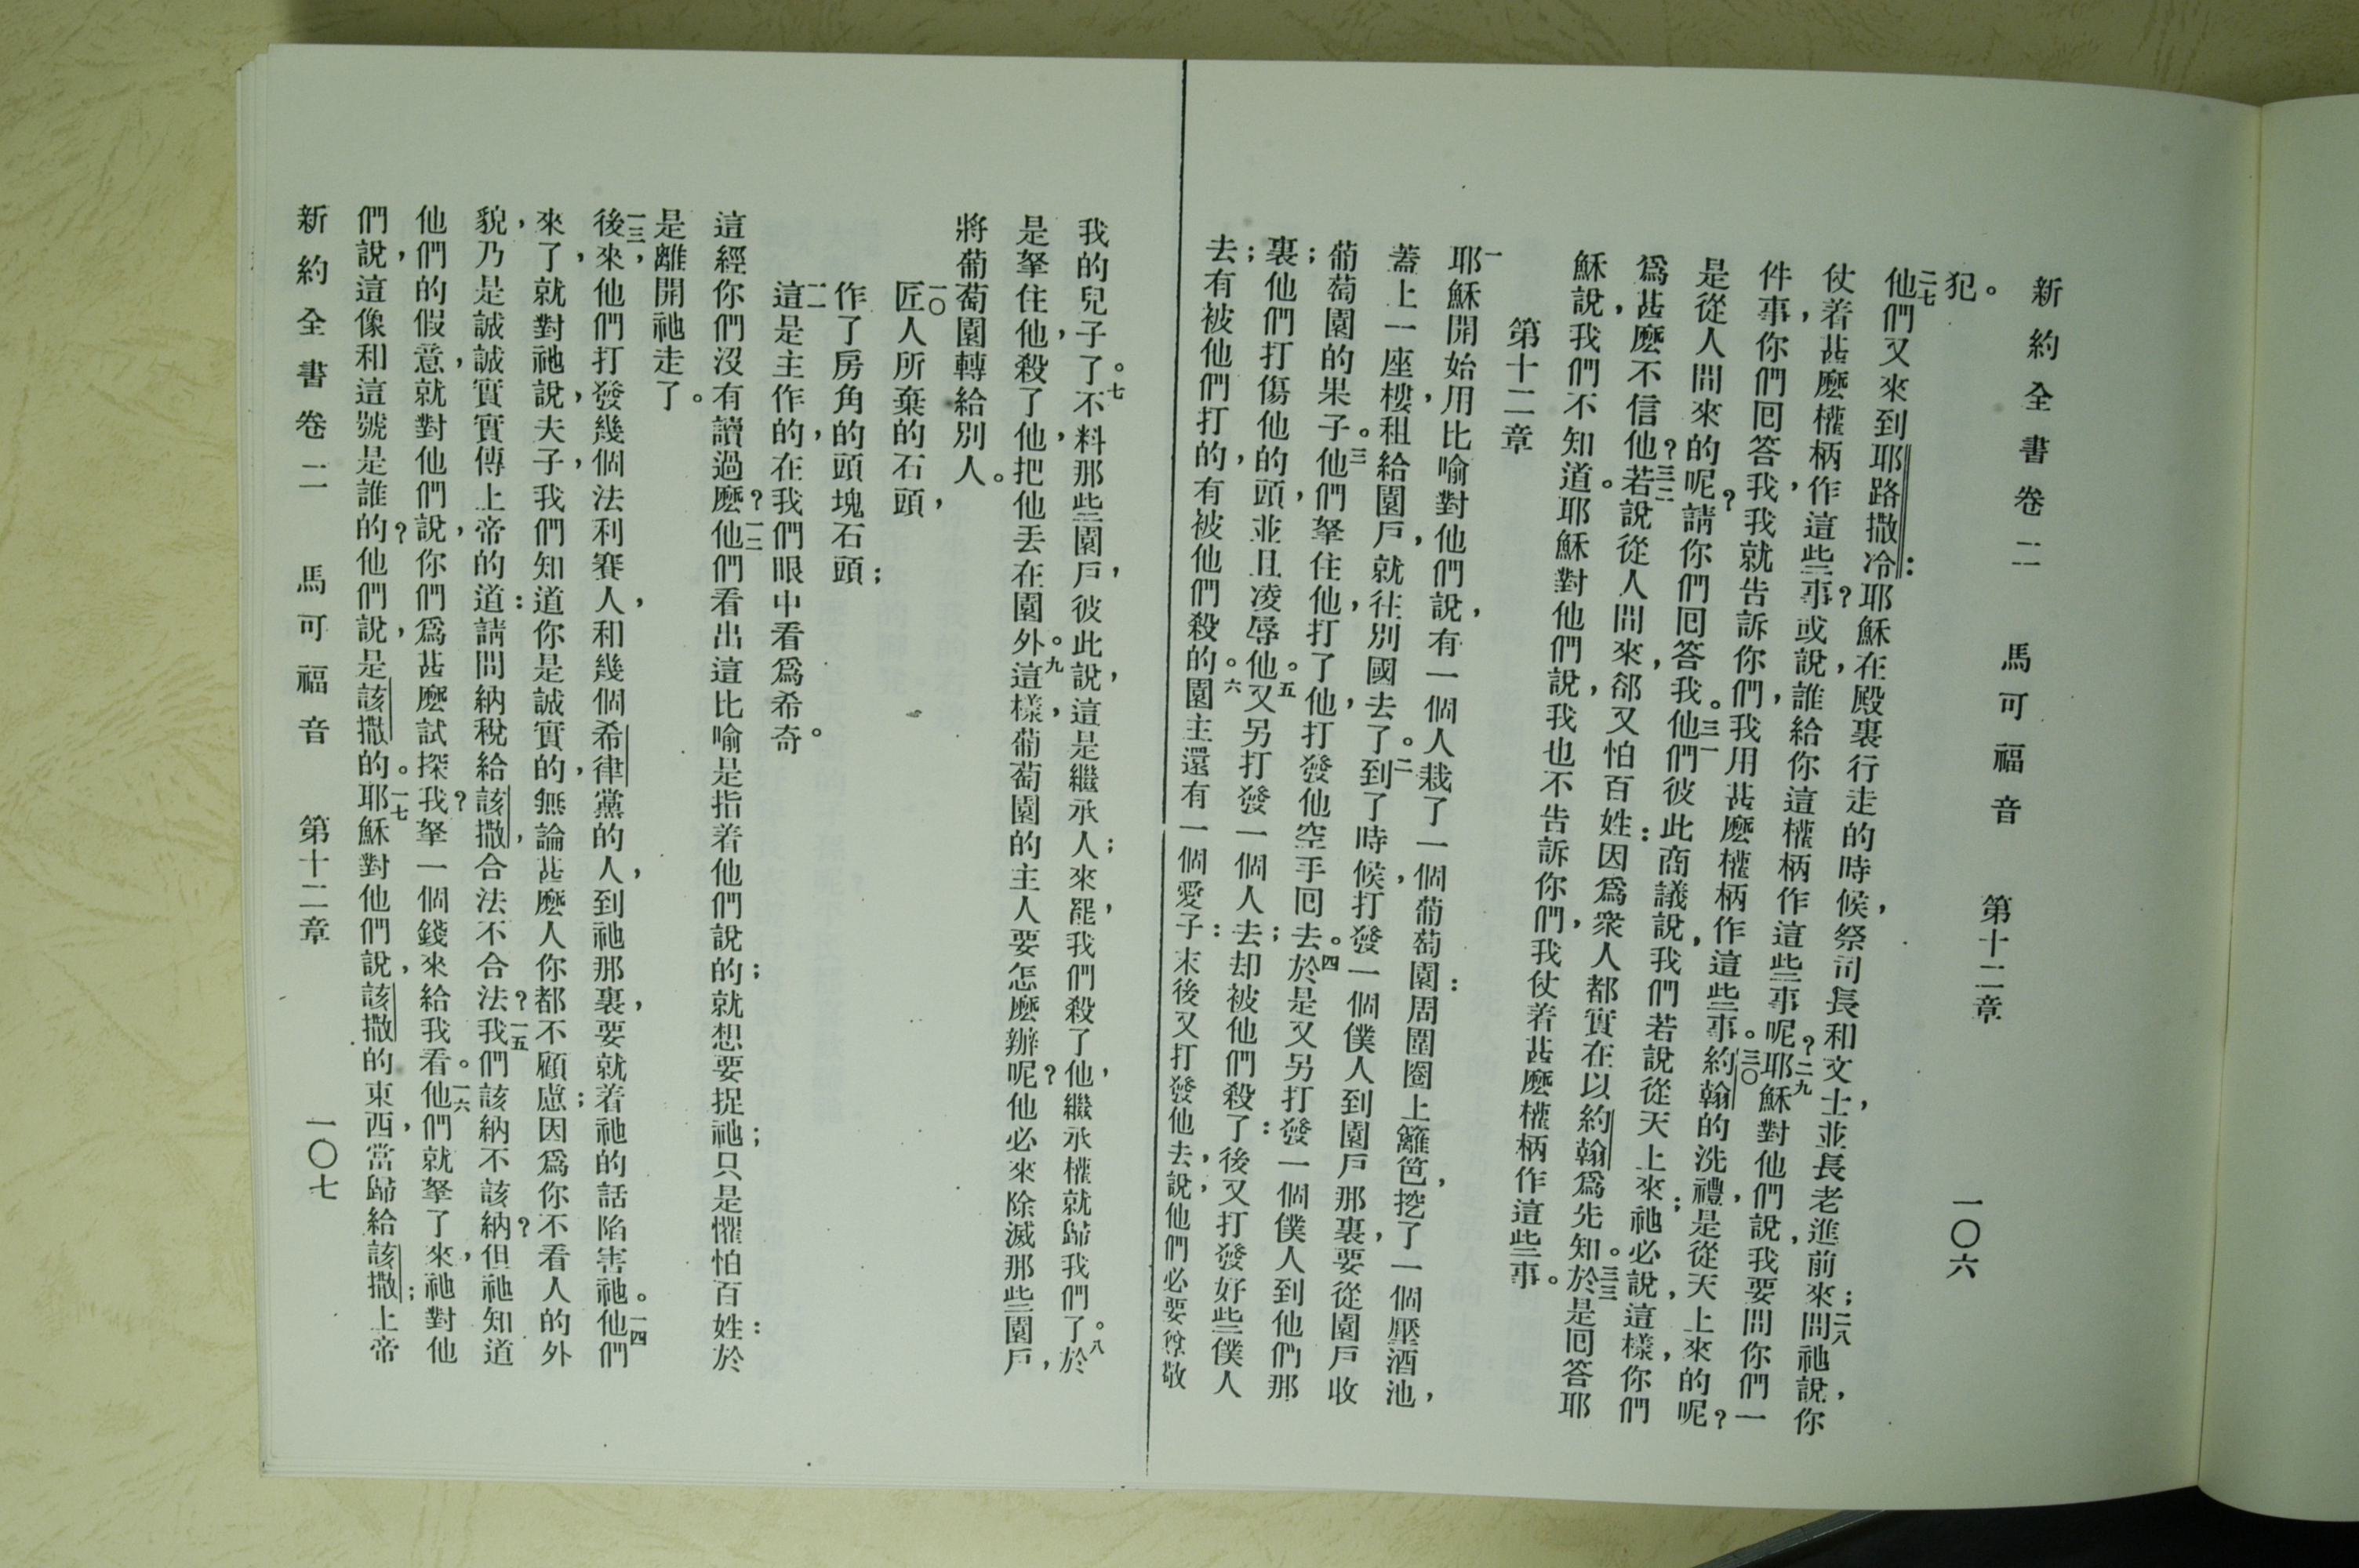 新約全書卷二 馬可福音 第十二章 一〇六
犯。
二七他們又來到耶路撒冷：耶穌在殿裏行走的時候，祭司長和文士，並長老進前來；二八問祂說，你
仗着甚麼權柄作這些事？或說，誰給你這權柄作這些事呢？二九耶穌對他們說，我要問你們一
件事，你們囘答我，我就告訴你們，我用甚麼權柄作這些事。三〇約翰的洗禮，是從天上來的呢？
是從人間來的呢？請你們囘答我。三一他們彼此商議說，我們若說從天上來；祂必說，這樣，你們
爲甚麼不信他？三二若說從人間來，郤又怕百姓：因爲衆人都實在以約翰爲先知。三三於是囘答耶
穌說，我們不知道。耶穌對他們說，我也不告訴你們，我仗着甚麼權柄作這些事。
第十二章
一耶穌開始用比喻對他們說，有一個人栽了一個葡萄園：周圍圈上籬笆，挖了一個壓酒池，
蓋上一座樓，租給園戶，就往別國去了。二到了時候，打發一個僕人到園戶那裏，要從園戶收
葡萄園的果子。三他們拏住他，打了他，打發他空手囘去。四於是又另打發一個僕人到他們那
裏；他們打傷他的頭，並且凌辱他。五又另打發一個人去；却被他們殺了：後又打發好些僕人
去；有被他們打的，有被他們殺的。六園主還有一個愛子：末後又打發他去，說，他們必要尊敬
我的兒子了。七不料那些園戶，彼此說，這是繼承人；來罷，我們殺了他，繼承權就歸我們了。八於
是拏住他，殺了他，把他丟在園外。九這樣，葡萄園的主人要怎麼辦呢？他必來除滅那些園戶，
將葡萄園轉給別人。
一〇匠人所棄的石頭，
作了房角的頭塊石頭；
一一這是主作的，在我們眼中看爲希奇。
這經你們沒有讀過麼？一二他們看出這比喻是指着他們說的；就想要捉祂；只是懼怕百姓：於
是離開祂走了。
一三後來，他們打發幾個法利賽人，和幾個希律黨的人，到祂那裏，要就着祂的話陷害祂。一四他們
來了，就對祂說，夫子，我們知道你是誠實的，無論甚麼人你都不顧慮；因爲你不看人的外
貌，乃是誠誠實實傳上帝的道：請問納稅給該撒，合法不合法？一五我們該納不該納？但祂知道
他們的假意，就對他們說，你們爲甚麼試探我？拏一個錢來給我看。一六他們就拏了來，祂對他
們說，這像和這號是誰的？他們說，是該撒的。一七耶穌對他們說，該撒的東西，當歸給該撒；上帝
新約全書卷二 馬可福音 第十二章 一〇七